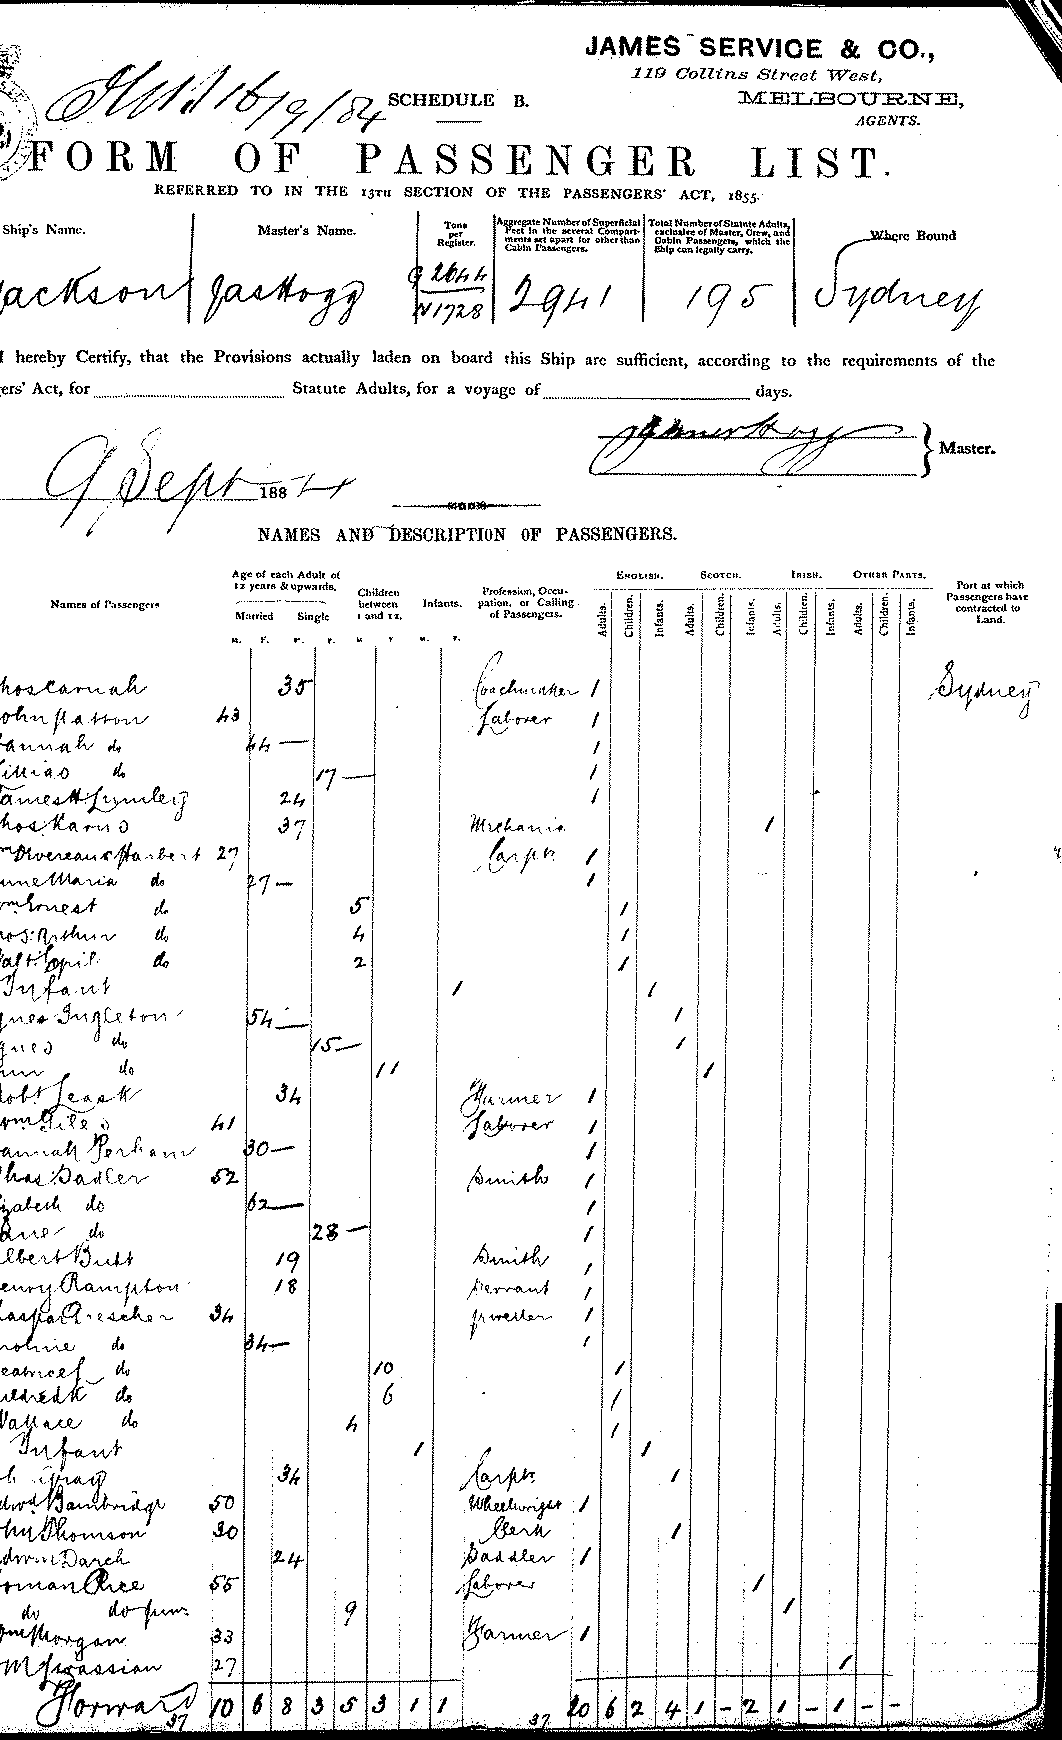 JAMES SERVICE & CO.,
119 Collins Street West,
MELBOURNE,
AGENTS.
16/9/84
SCHEDULE B.
FORM OF PASSENGER LIST.
REFERRED TO IN THE 13TH SECTION OF THE PASSENGERS' ACT, 1855.
Ship's Name. Master's Name. Tons per Register. Aggregate Number of Superficial Feet in the several Compartments set apart for other than Cabin Passengers. Total Number of Statute Adults, exclusive of Master, Crew, and Cabin Passengers, which the Ship can legally carry. Where Bound
Jackson Jas Hogg G 2644 N 1728 2941 195 Sydney
I hereby Certify, that the Provisions actually laden on board this Ship are sufficient, according to the requirements of the
ers' Act, for Statute Adults, for a voyage of days.
James Hogg } Master.
9 Sept 1884
NAMES AND DESCRIPTION OF PASSENGERS.
Names of Passengers Age of each Adult of 12 years & upwards. Married Single Children between 1 and 12. Infants. Profession, Occupation, or Calling of Passengers. ENGLISH. SCOTCH. IRISH. OTHER PARTS. Port at which Passengers have contracted to Land.
M. F. M. F. M F M. F. Adults. Children. Infants. Adults. Children. Infants. Adults. Children. Infants. Adults. Children. Infants.
hos Carnah 35 Coachmaker 1 Sydney
ohn Patton 43 Laborer 1
annah do 44 — 1
do 17 — 1
ames H Lumley 24 1
hos 37 Mechanic 1
Devereaux Harbert 27 Carptr 1
nne Maria do 27 — 1
Ernest do 5 1
Arthur do 4 1
do 2 1
Infant 1 1
gnes Ingleton 54 — 1
gnes do 15 — 1
do 11 1
obt Leask 34 Farmer 1
Giles 41 Laborer 1
annah Perham 30 — 1
has Sadler 52 Smith 1
izabeth do 62 — 1
do 28 — 1
lbert Butt 19 Smith 1
enry Rampton 18 Servant 1
aspar Drescher 34 Jeweller 1
roline do 34 — 1
eatrice do 10 1
ildred K do 6 1
Wallace do 4 1
Infant 1 1
Gray 34 Carptr 1
dwd Bambridge 50 Wheelwright 1
hn Thomson 30 Clerk 1
dwin Darch 24 Saddler 1
oman Rice 55 Laborer 1
do do junr 9 1
Morgan 33 Farmer 1
27 1
Forward 10 6 8 3 5 3 1 1 20 6 2 4 1 - 2 1 - 1 - -
37 37